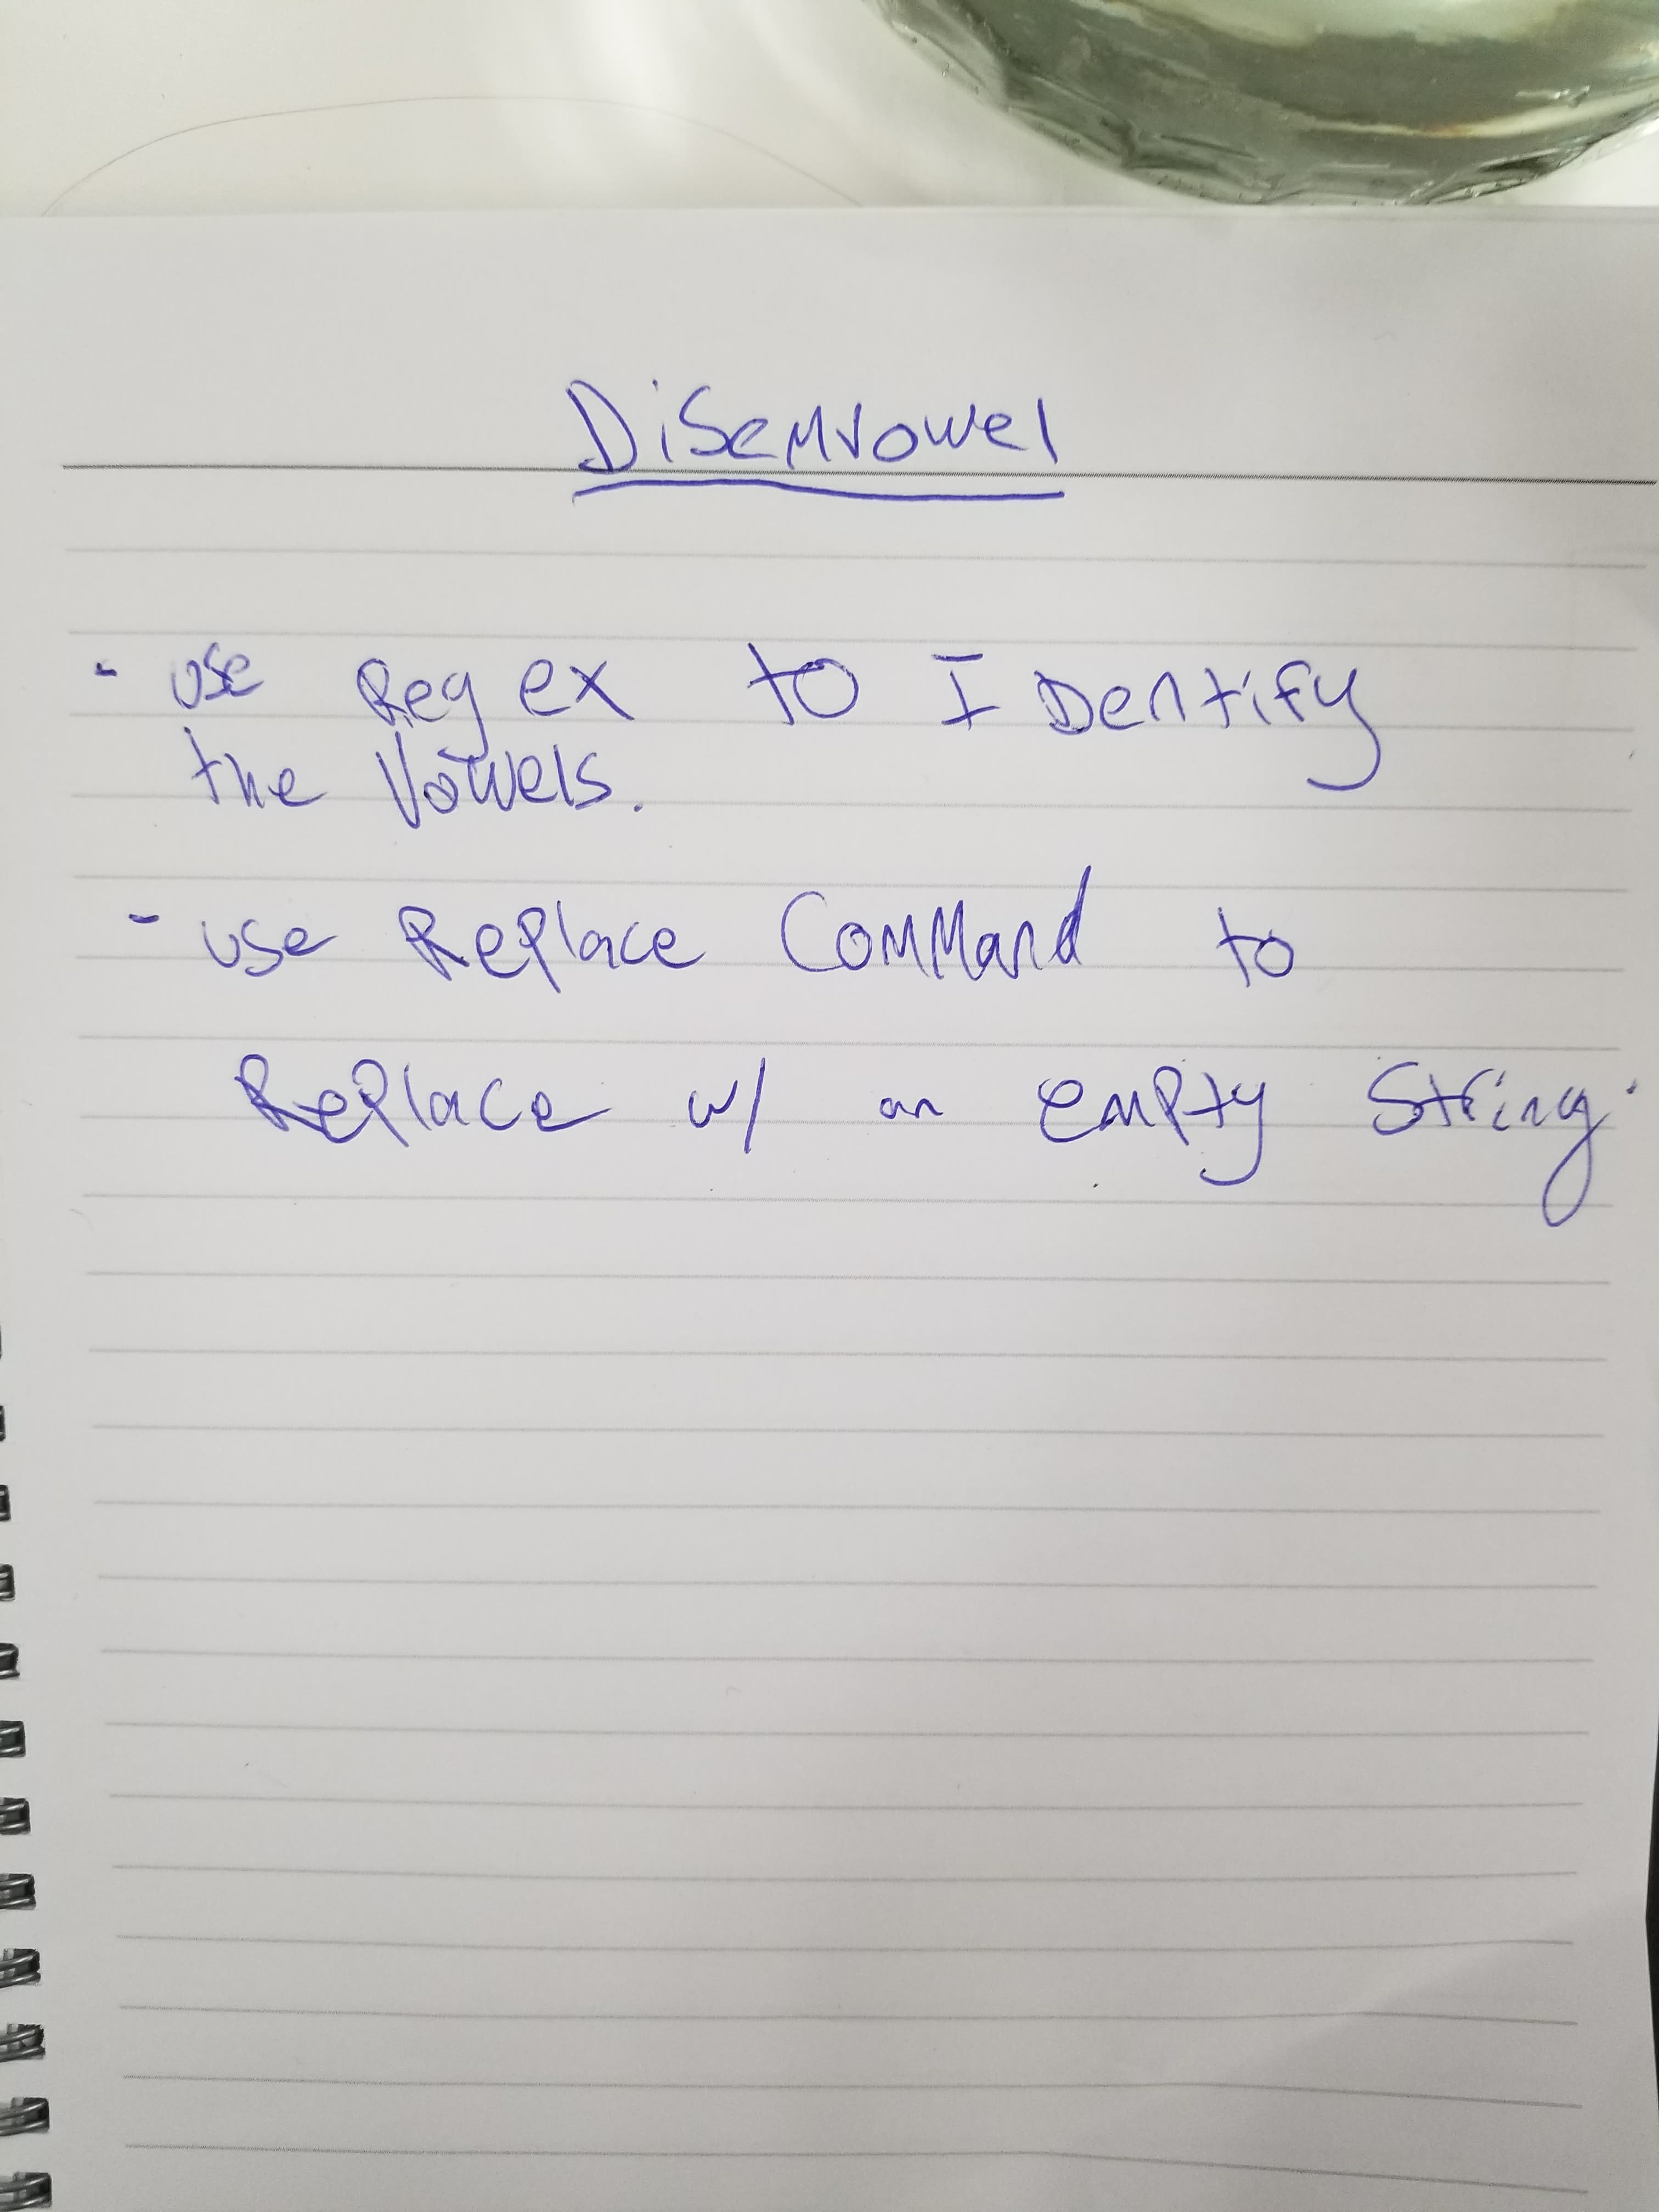 Disemvowel
- use Regex to IDentify
the Vowels.
- use Replace Command to
Replace w/ an empty string.